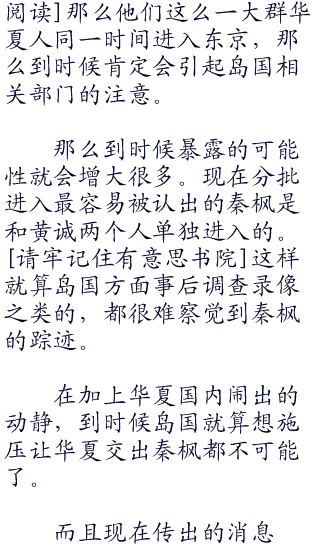 阅读]那么他们这么一大群华
夏人同一时间进入东京，那
么到时候肯定会引起岛国相
关部门的注意。
那么到时候暴露的可能
性就会增大很多。现在分批
进入最容易被认出的秦枫是
和黄诚两个人单独进入的。
[请牢记住有意思书院]这样
就算岛国方面事后调查录像
之类的，都很难察觉到秦枫
的踪迹。
在加上华夏国内闹出的
动静，到时候岛国就算想施
压让华夏交出秦枫都不可能
了。
而且现在传出的消息